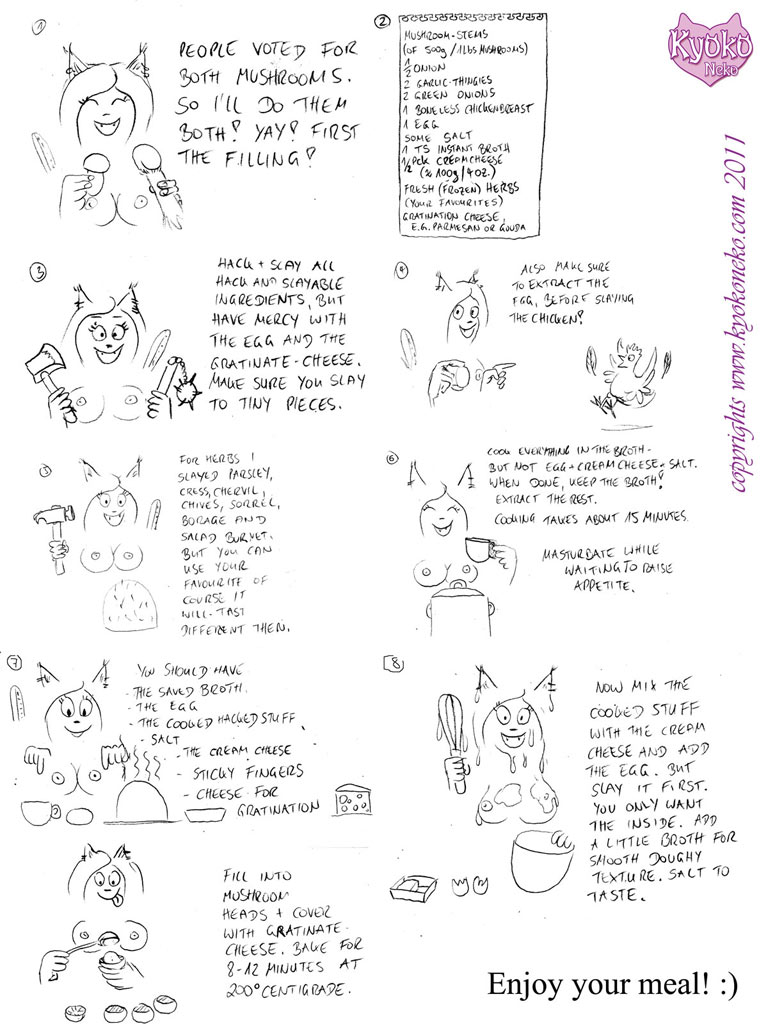 1
PEOPLE VOTED FOR
BOTH MUSHROOMS.
SO I'LL DO THEM
BOTH! YAY! FIRST
THE FILLING!
2
MUSHROOM-STEMS
(OF 500g/1LBS MUSHROOMS)
1/2 ONION
2 GARLIC-THINGIES
2 GREEN ONIONS
1 BONELESS CHICKENBREAST
1 EGG
SOME SALT
1 TS INSTANT BROTH
1/2 PCK CREAMCHEESE
(≈ 100g/4OZ.)
FRESH (FROZEN) HERBS
(YOUR FAVOURITES)
GRATINATION CHEESE,
E.G. PARMESAN OR GOUDA
Kyoko
Neko
copyrights www.kyokoneko.com 2011
3
HACK + SLAY ALL
HACK AND SLAYABLE
INGREDIENTS, BUT
HAVE MERCY WITH
THE EGG AND THE
GRATINATE-CHEESE.
MAKE SURE YOU SLAY
TO TINY PIECES.
4
ALSO MAKE SURE
TO EXTRACT THE
EGG, BEFORE SLAYING
THE CHICKEN!
5
FOR HERBS I
SLAYED PARSLEY,
CRESS, CHERVIL,
CHIVES, SORREL,
BORAGE AND
SALAD BURNET.
BUT YOU CAN
USE YOUR
FAVOURITE OF
COURSE IT
WILL TAST
DIFFERENT THEN.
6
COOK EVERYTHING IN THE BROTH -
BUT NOT EGG + CREAM CHEESE + SALT.
WHEN DONE, KEEP THE BROTH!
EXTRACT THE REST.
COOKING TAKES ABOUT 15 MINUTES.
MASTURBATE WHILE
WAITING TO RAISE
APPETITE.
7
YOU SHOULD HAVE
- THE SAVED BROTH.
- THE EGG
- THE COOGED HACGED STUFF
- SALT
- THE CREAM CHEESE
- STICKY FINGERS
- CHEESE FOR
GRATINATION
8
NOW MIX THE
COOGED STUFF
WITH THE CREAM
CHEESE AND ADD
THE EGG. BUT
SLAY IT FIRST.
YOU ONLY WANT
THE INSIDE. ADD
A LITTLE BROTH FOR
SMOOTH DOUGHY
TEXTURE. SALT TO
TASTE.
FILL INTO
MUSHROOM
HEADS + COVER
WITH GRATINATE-
CHEESE. BAKE FOR
8-12 MINUTES AT
200° CENTIGRADE.
Enjoy your meal! :)